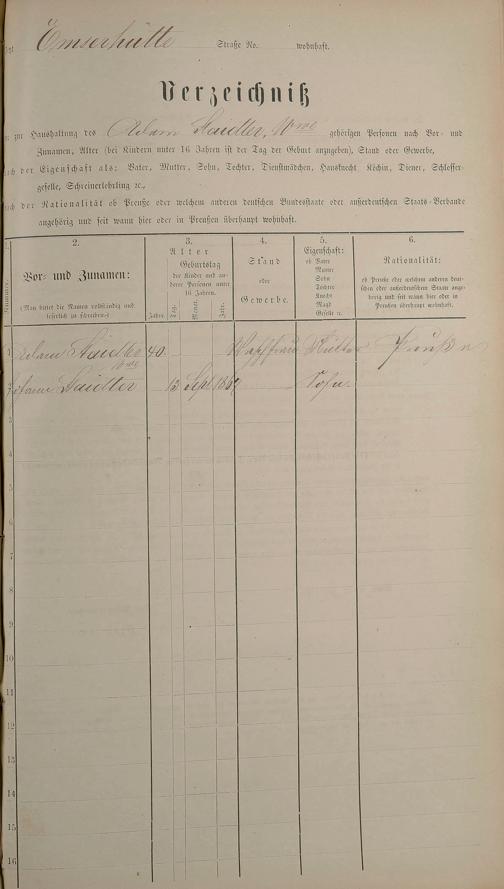 Emserhütte Straße No. wohnhaft.
Verzeichniß
zur Haushaltung des Adam Haidter, Wwe gehörigen Personen nach Vor- und
Zunamen, Alter (bei Kindern unter 16 Jahren ist der Tag der Geburt anzugeben), Stand oder Gewerbe,
nach der Eigenschaft als: Vater, Mutter, Sohn, Tochter, Dienstmädchen, Hausknecht Köchin, Diener, Schlosser-
geselle, Schreinerlehrling ꝛc.,
nach der Nationalität ob Preuße oder welchem anderen deutschen Bundesstaate oder außerdeutschem Staats-Verbande
angehörig und seit wann hier oder in Preußen überhaupt wohnhaft.
Nummer.
2.
Vor- und Zunamen:
(Man bittet die Namen vollständig und
leserlich zu schreiben.)
3.
Alter
Geburtstag
der Kinder und an-
derer Personen unter
16 Jahren.
Jahre.
Tag.
Monat.
Jahr.
4.
Stand
oder
Gewerbe.
5.
Eigenschaft:
ob Vater
Mutter
Sohn
Tochter
Knecht
Magd
Geselle ꝛc.
6.
Nationalität:
ob Preuße oder welchem anderen deut-
schen oder außerdeutschem Staate ange-
hörig und seit wann hier oder in
Preußen überhaupt wohnhaft.
1 Adam Haidter Wwe 40. Mutter Preuße
2 Haidter 13 Sept 1867 Sohn.
3
4
5
6
7
8
9
10
11
12
13
14
15
16